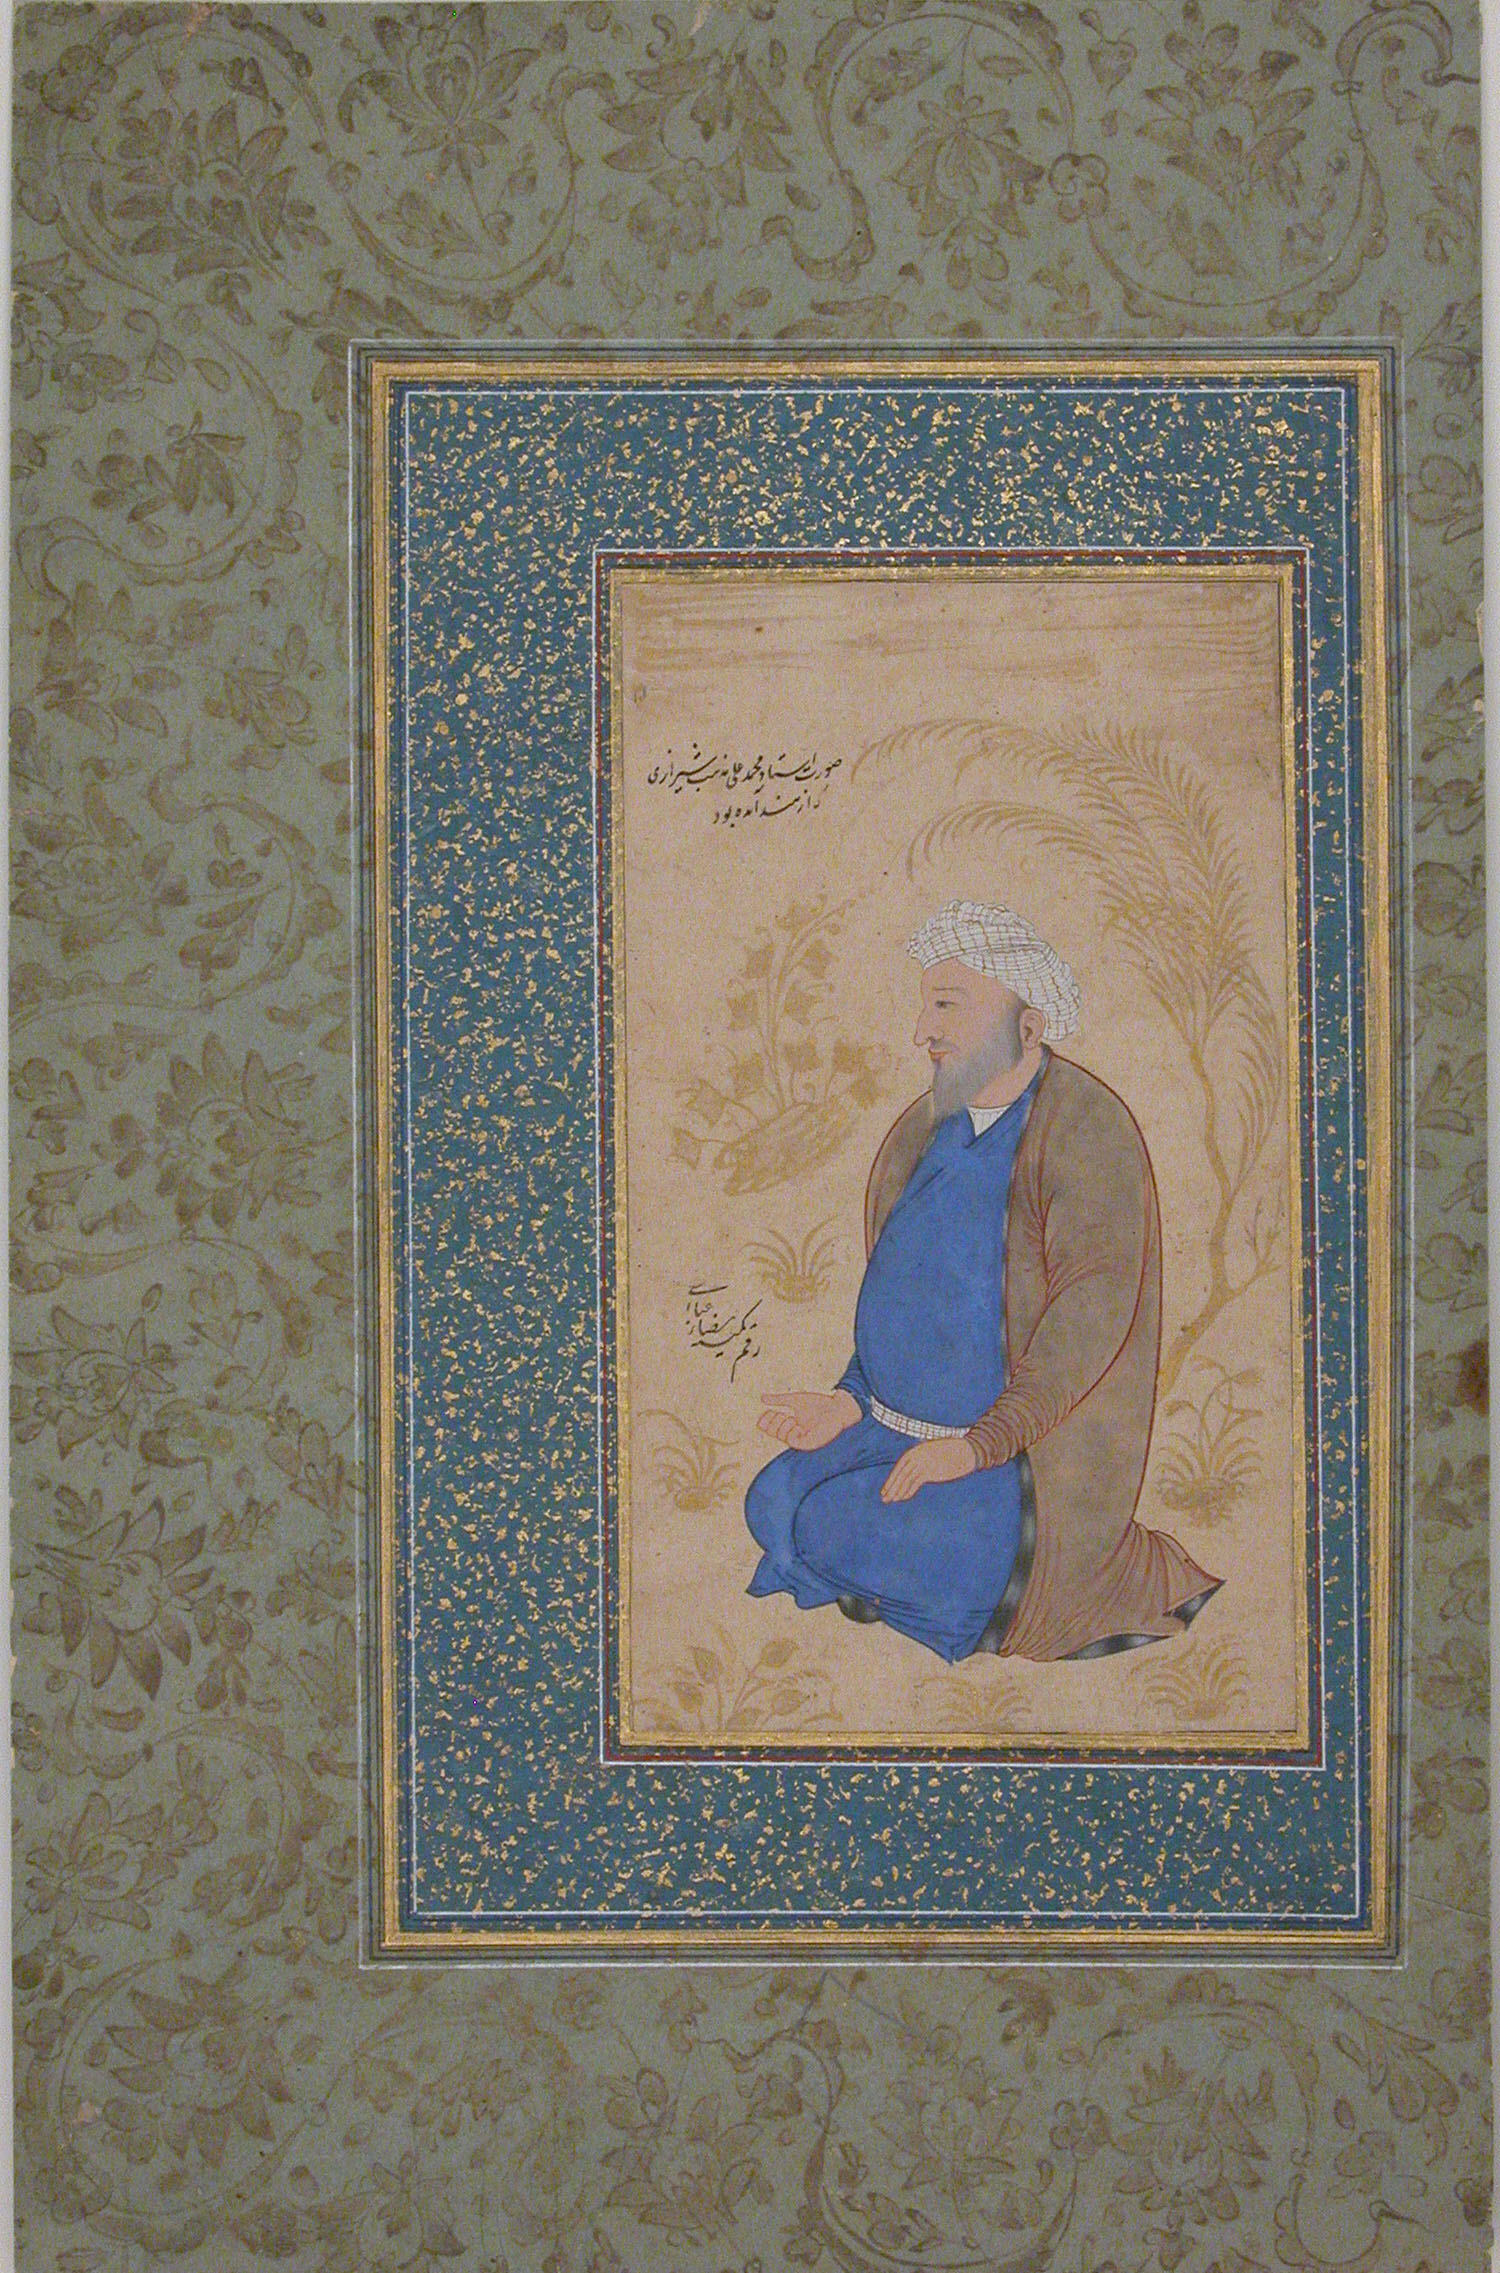 صورت استاد محمد علی مذهب شیرازی
که از هند آمده بود
رقم کمینه رضاء عباسی